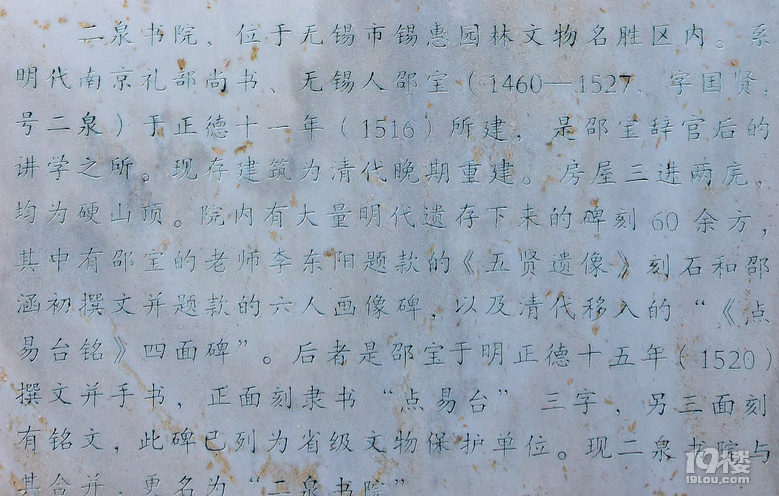 二泉书院，位于无锡市锡惠园林文物名胜区内。系
明代南京礼部尚书、无锡人邵宝（1460—1527，字国贤，
号二泉）于正德十一年（1516）所建，是邵宝辞官后的
讲学之所。现存建筑为清代晚期重建。房屋三进两庑，
均为硬山顶。院内有大量明代遗存下来的碑刻60余方，
其中有邵宝的老师李东阳题款的《五贤遗像》刻石和邵
涵初撰文并题款的六人画像碑，以及清代移入的“《点
易台铭》四面碑”。后者是邵宝于明正德十五年（1520）
撰文并手书，正面刻隶书“点易台”三字，另三面刻
有铭文，此碑已列为省级文物保护单位。现二泉书院与
其合并，更名为“二泉书院”
19楼
19lou.com